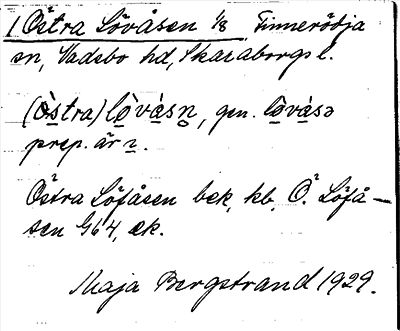 1 Östra Lövåsen 1/8 Finnerödja
sn, Vadsbo hd, Skaraborgs l.
(östra) lòvàsn, gen. lòvàsə
prep. är ı.
Östra Löfåsen bek, kb, Ö. Löfå-
sen G64, ek.
Maja Bergstrand 1929.